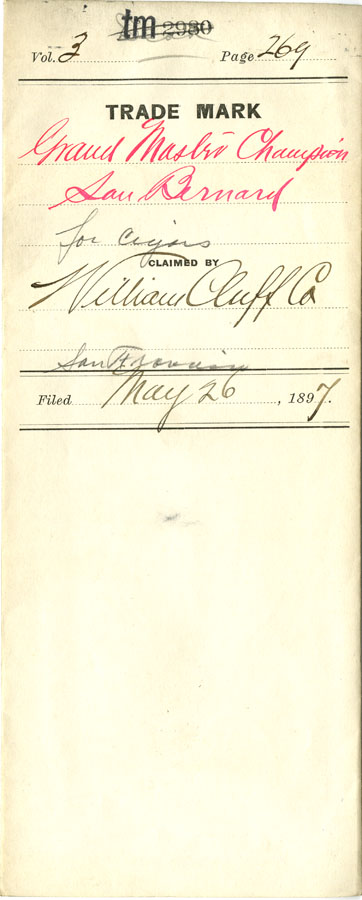 tm 2980
Vol. 3 Page 269
TRADE MARK
Grand Master Champion
San Bernard
for cigars
CLAIMED BY
William Cluff Co
San Francisco
Filed May 26, 1897.